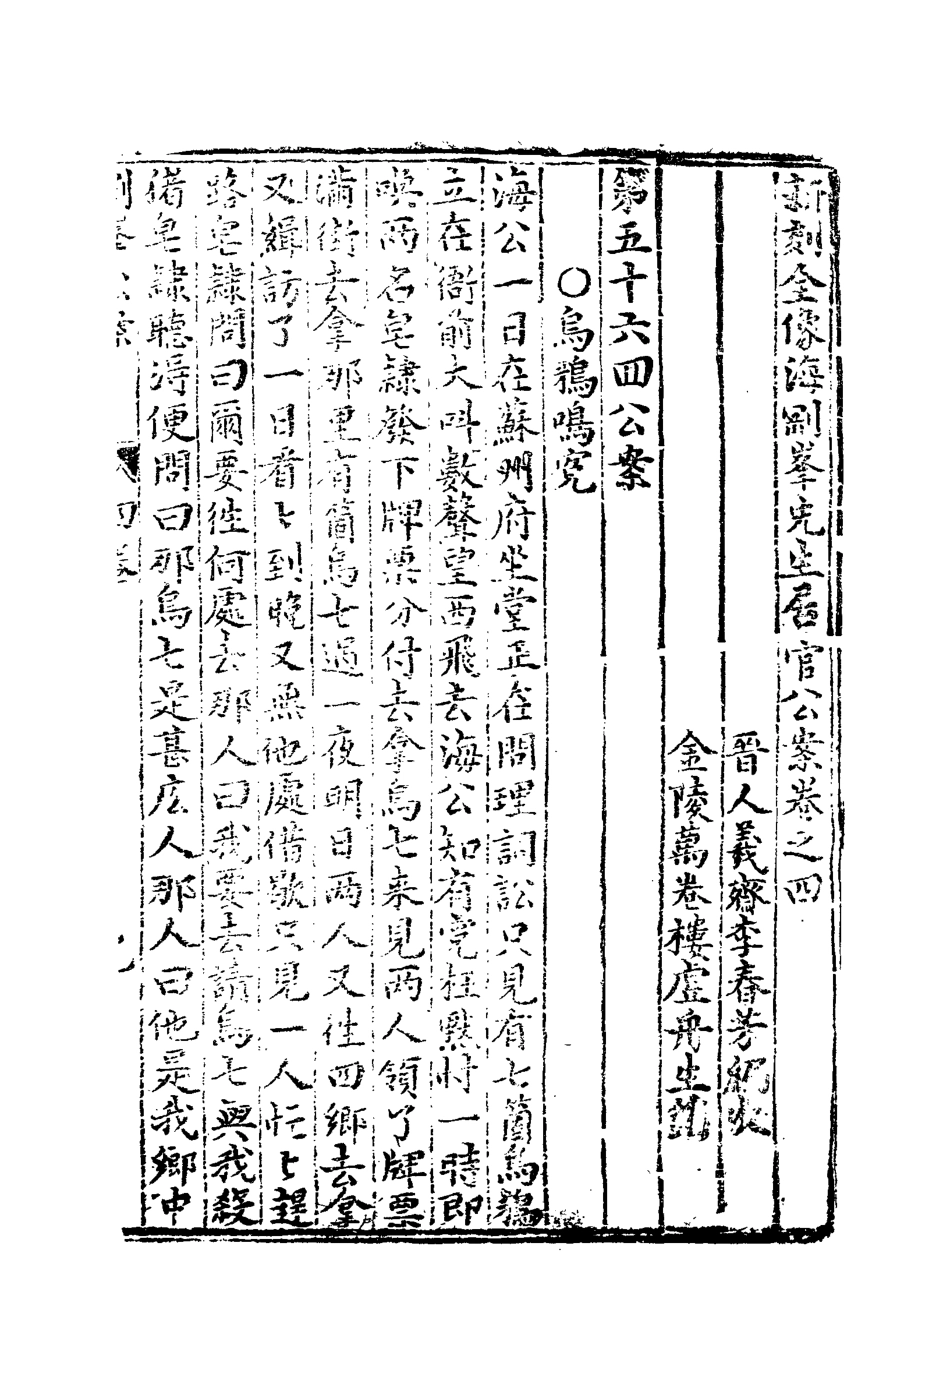 新刻全像海剛峯先生居官公案卷之四
晉人羲齋李春芳編次
金陵萬卷樓虛舟生鐫
第五十六四公案
○烏鴉鳴冤
海公一日在蘇州府坐堂正在問理詞訟只見有七箇烏鴉
立在衙前大呌數聲望西飛去海公知有冤枉默忖一時即
喚兩名皂隷發下牌票分付去拿烏七來見兩人領了牌票
滿街去拿那里有箇烏七過一夜明日兩人又徃四鄉去拿
又緝訪了一日看〻到晚又無他處借歇只見一人忙〻趕
路皂隷問曰爾要徃何處去那人曰我要去請烏七與我殺
猪皂隷聽得便問曰那烏七是甚庅人那人曰他是我鄉中